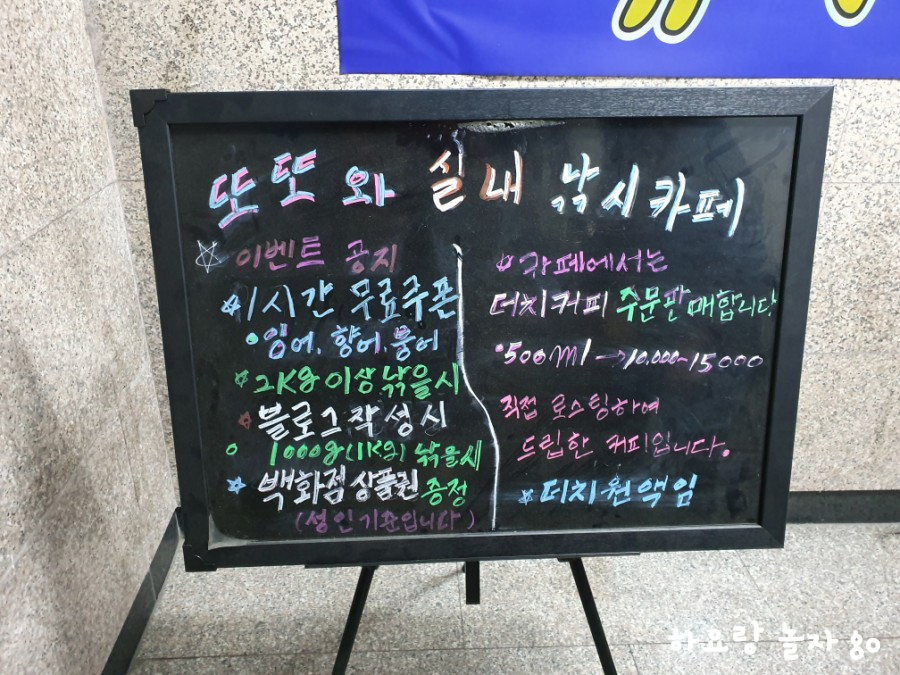 또또와 실내 낚시카페
☆ 이벤트 공지
☆ 1시간 무료쿠폰
• 잉어, 향어, 붕어
☆ 2Kg 이상 낚을시
☆ 블로그작성시
○ 1000g(1Kg) 낚을시
☆ 백화점상품권 증정
(성인기준입니다)
☆ 카페에서는
더치커피 주문판매합니다
• 500ml → 10,000~15000
직접 로스팅하여
드립한 커피입니다.
☆ 더치원액임
하요랑 놀자 80